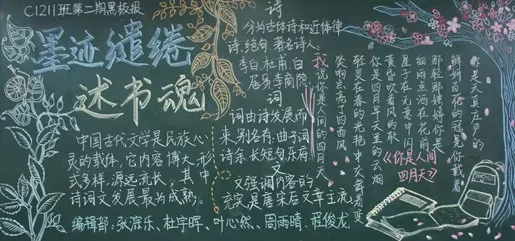 C1211班第二期黑板报
墨迹缱绻
述书魂
中国古代文学是民族心
灵的载体,它内容博大,形
式多样,源远流长,其中
诗词文发展最为成熟。
编辑部:张滨乐、杜宇晖、叶心然、周雨晴、程俊龙
诗
分为古体诗和近体律
诗、绝句,著名诗人
李白、杜甫、白
居易、李商隐
词
词由诗发展而
来,别名有:曲子词
诗余、长短句、乐府
文
文强调内容的
充实是唐宋后文章主流
《你是人间
四月天》
我说你是人间的四月天
笑响点亮了四面风
轻灵在春的光艳中交舞着变
你是四月早天里的云烟
黄昏吹着风的软
星子在无意中闪
细雨点洒在花前
那轻那娉婷你是
鲜妍百花的冠冕你戴着